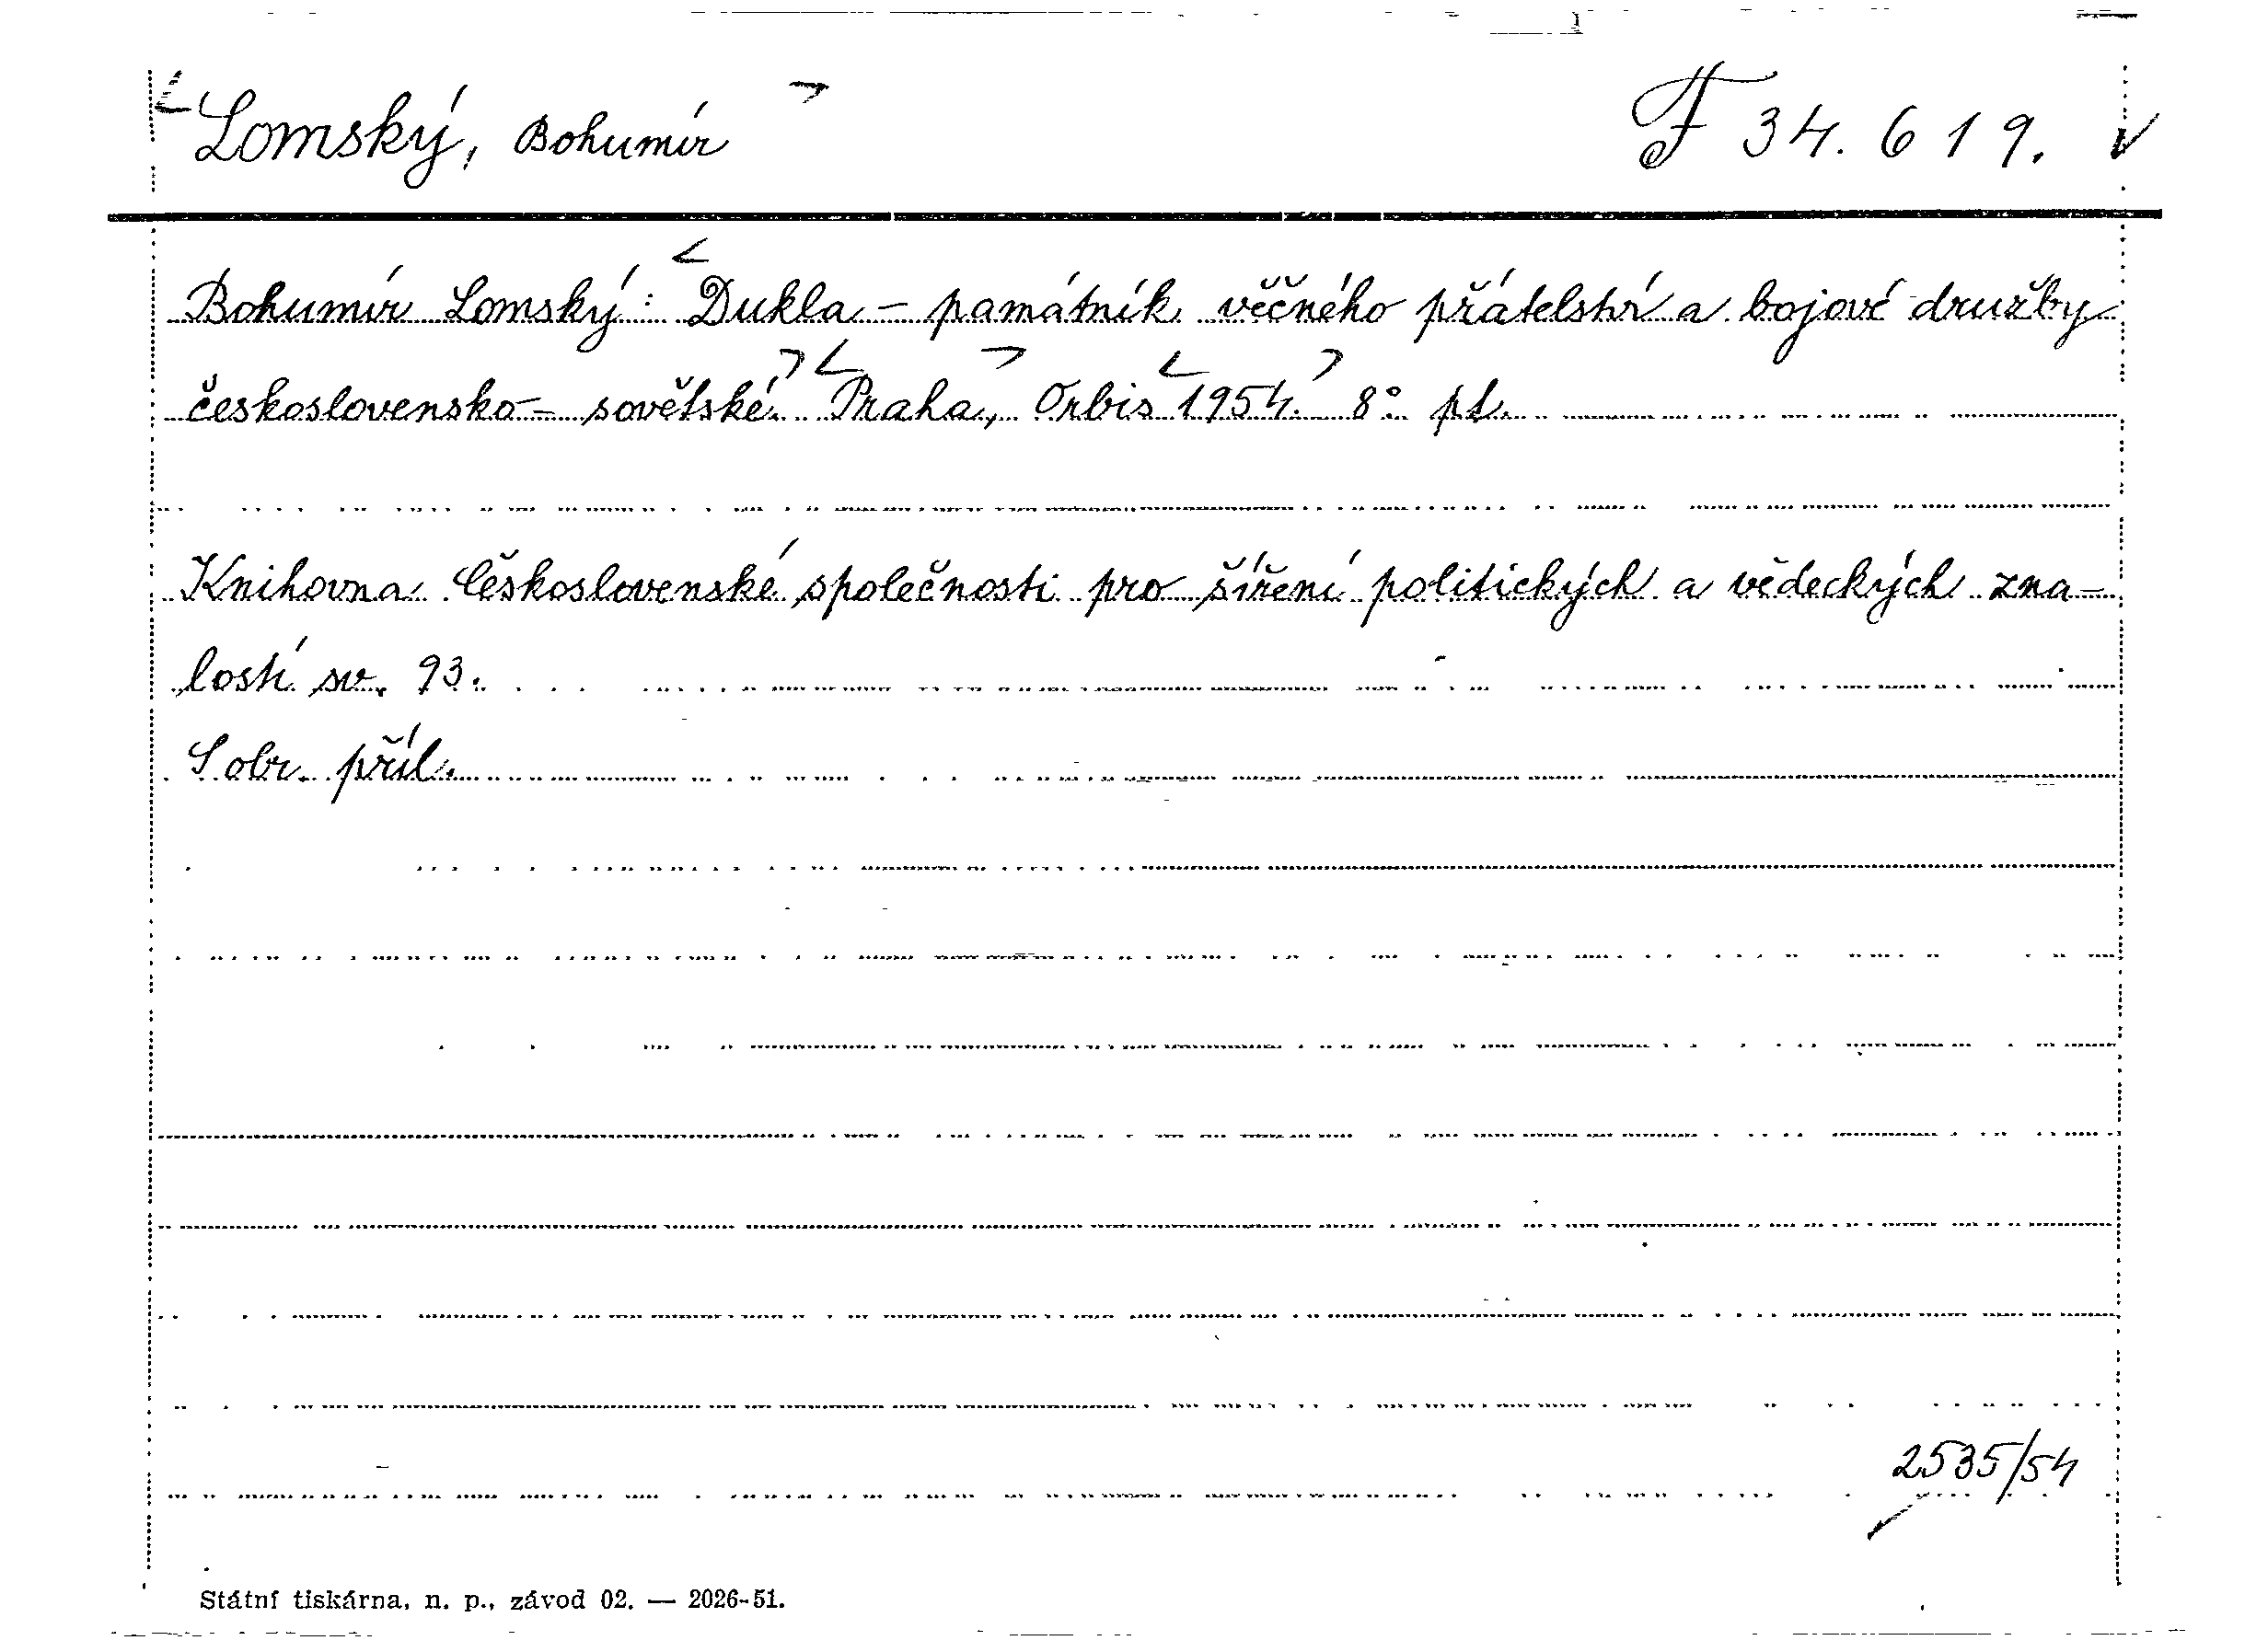 Lomský, Bohumír F 34.619.
Bohumír Lomský: Dukla – památník věčného přátelství a bojové družby
československo – sovětské. Praha, Orbis 1954. 8° pl.
Knihovna Československé společnosti pro šíření politických a vědeckých zna-
lostí sv. 93.
S obr. příl.
2535/54
Státní tiskárna, n. p., závod 02. — 2026-51.